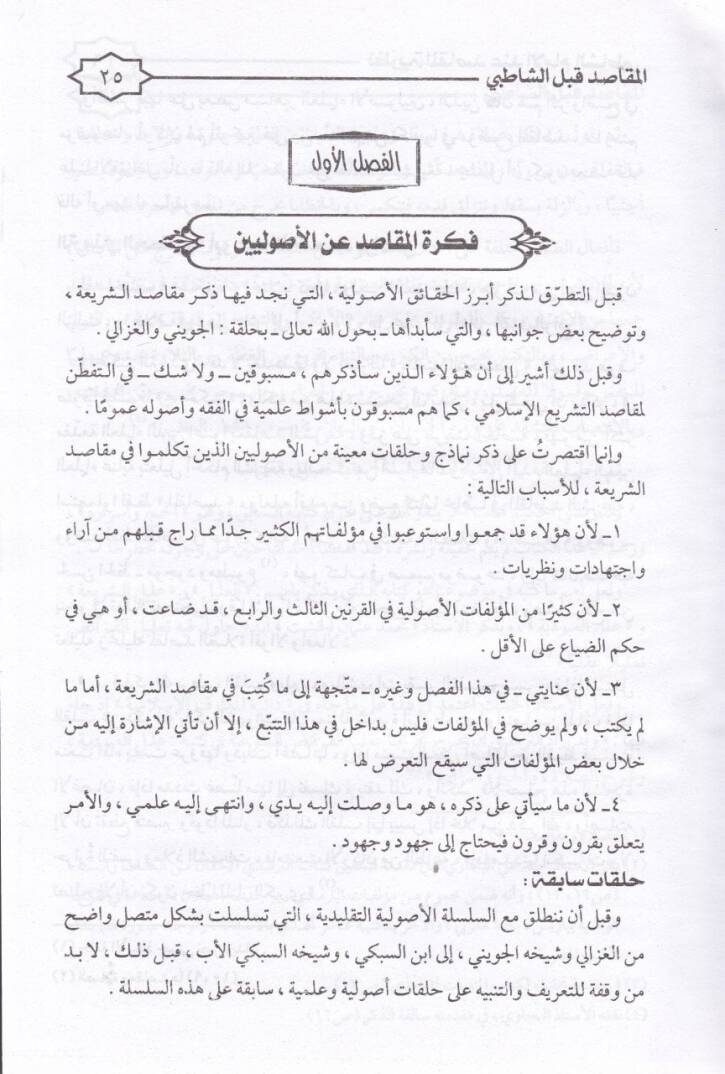 المقاصد قبل الشاطبي
٢٥
الفصل الأول
فكرة المقاصد عن الأصوليين
قبل التطرّق لذكر أبرز الحقائق الأصولية ، التي نجد فيها ذكر مقاصد الشريعة ،
وتوضيح بعض جوانبها ، والتي سأبدأها ـ بحول الله تعالى ـ بحلقة : الجويني والغزالي .
وقبل ذلك أشير إلى أن هؤلاء الذين سأذكرهم ، مسبوقين ـ ولا شك ـ في التفطّن
لمقاصد التشريع الإسلامي ، كما هم مسبوقون بأشواط علمية في الفقه وأصوله عمومًا .
وإنما اقتصرتُ على ذكر نماذج وحلقات معينة من الأصوليين الذين تكلموا في مقاصد
الشريعة ، للأسباب التالية :
١ـ لأن هؤلاء قد جمعوا واستوعبوا في مؤلفاتهم الكثير جدًا مما راج قبلهم من آراء
واجتهادات ونظريات .
٢ـ لأن كثيرًا من المؤلفات الأصولية في القرنين الثالث والرابع ، قد ضاعت ، أو هي في
حكم الضياع على الأقل .
٣ـ لأن عنايتي ـ في هذا الفصل وغيره ـ متّجهة إلى ما كُتِبَ في مقاصد الشريعة ، أما ما
لم يكتب ، ولم يوضح في المؤلفات فليس بداخل في هذا التتبّع ، إلا أن تأتي الإشارة إليه من
خلال بعض المؤلفات التي سيقع التعرض لها .
٤ـ لأن ما سيأتي على ذكره ، هو ما وصلت إليه يدي ، وانتهى إليه علمي ، والأمر
يتعلق بقرون وقرون فيحتاج إلى جهود وجهود .
حلقات سابقة :
وقبل أن ننطلق مع السلسلة الأصولية التقليدية ، التي تسلسلت بشكل متصل واضح
من الغزالي وشيخه الجويني ، إلى ابن السبكي ، وشيخه السبكي الأب ، قبل ذلك ، لا بد
من وقفة للتعريف والتنبيه على حلقات أصولية وعلمية ، سابقة على هذه السلسلة .